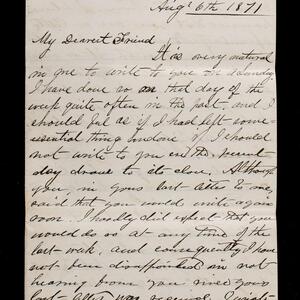 Aug. 6th 1871
My Dearest Friend
It is very natural
in me to write to you on a Sunday
I have done so on that day of the
week quite often in the past, and I
should feel as if I had left some
essential thing undone if I should
not write to you ere the present
day draws to its close. Although
you, in your last letter to me,
said that you would write again
soon. I hardly did expect that you
would do so at any time of the
last week, and consequently I have
not been disappointed in not
hearing from you since your
last letter was received. I wish